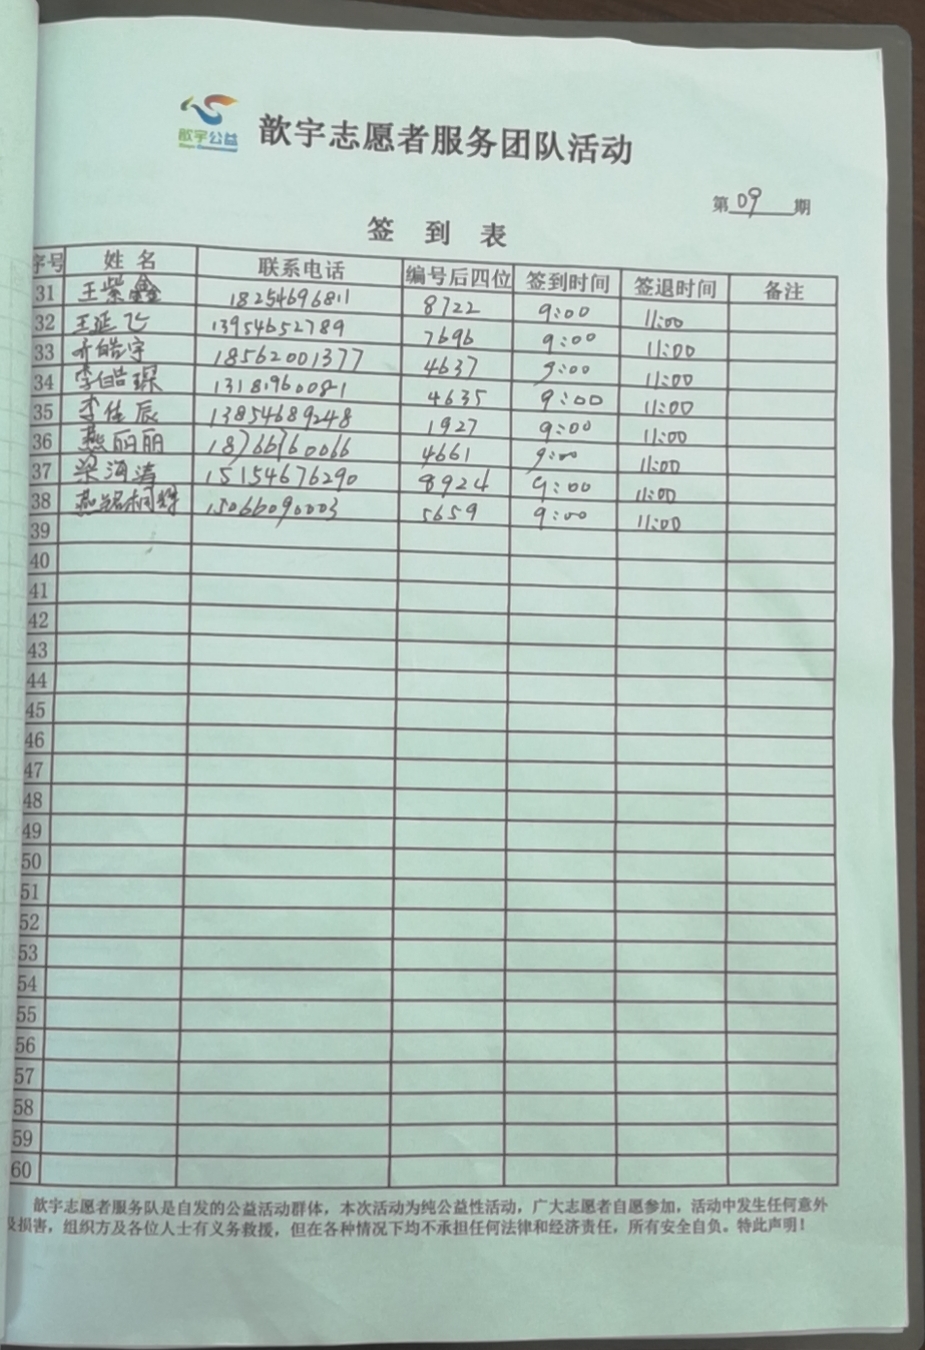 歆宇公益
歆宇志愿者服务团队活动
第09期
签 到 表
序号 姓名 联系电话 编号后四位 签到时间 签退时间 备注
31 王紫鑫 18254696811 8722 9:00 11:00
32 王延飞 13954652789 7696 9:00 11:00
33 齐皓宇 18562001377 4637 9:00 11:00
34 李皓琛 13181960081 4635 9:00 11:00
35 李佳辰 13854689248 1927 9:00 11:00
36 燕丽丽 18766760066 4661 9:00 11:00
37 梁海涛 15154676290 8924 9:00 11:00
38 燕铭桐 15066090003 5659 9:00 11:00
39
40
41
42
43
44
45
46
47
48
49
50
51
52
53
54
55
56
57
58
59
60
歆宇志愿者服务队是自发的公益活动群体，本次活动为纯公益性活动，广大志愿者自愿参加，活动中发生任何意外
及损害，组织方及各位人士有义务救援，但在各种情况下均不承担任何法律和经济责任，所有安全自负。特此声明！